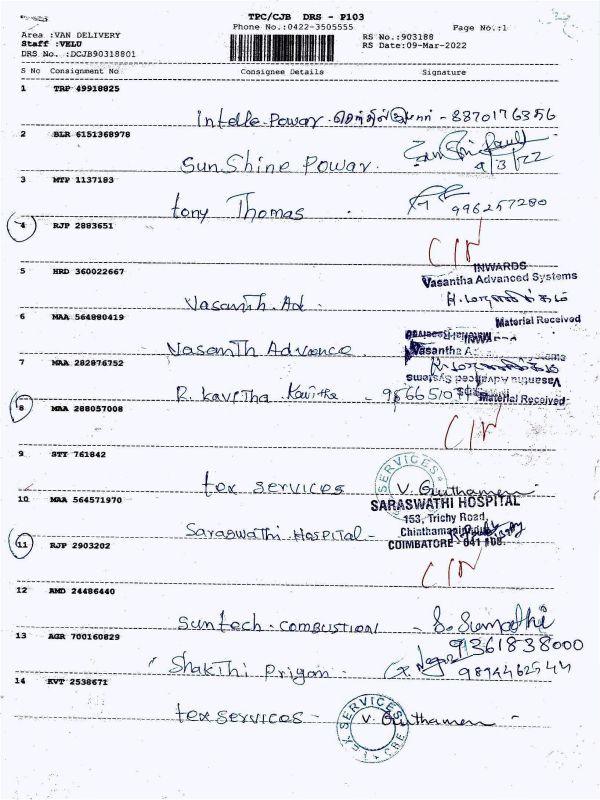 TPC/CJB DRS - P103
Phone No.:0422-3505555
Page No.:1
Area :VAN DELIVERY
RS No.:903188
Staff :VELU
RS Date:09-Mar-2022
DRS No. :DCJB90318801
S No Consignment No Consignee Details Signature
1 TRP 49918825
Intelle Power செந்தில்குமார் - 8870176356
2 BLR 6151368978
Sun Shine Power.
9/3/22
3 MTP 1137183
tony Thomas
996257280
4 RJP 2883651
5 HRD 360022667
INWARDS
Vasantha Advanced Systems
Vasanth. Ad.
6 MAA 564880419
Material Received
Vasanth Advance
Vasantha
7 MAA 282876752
Vasantha Advanced Systems
R. Kavitha Kavitha
Material Received
8 MAA 288057008
9 STT 761842
SERVICES
tex services V. Guithamen
10 MAA 564571970
SARASWATHI HOSPITAL
153, Trichy Road,
Saraswathi Hospital -
COIMBATORE
11 RJP 2903202
12 AMD 24486440
suntech. combustion - S. Sumathi
9361838000
13 AGR 700160829
Shakthi Prigan
9894462544
14 KVT 2538671
tex services - V. Guithamen
TEX SERVICES CBE